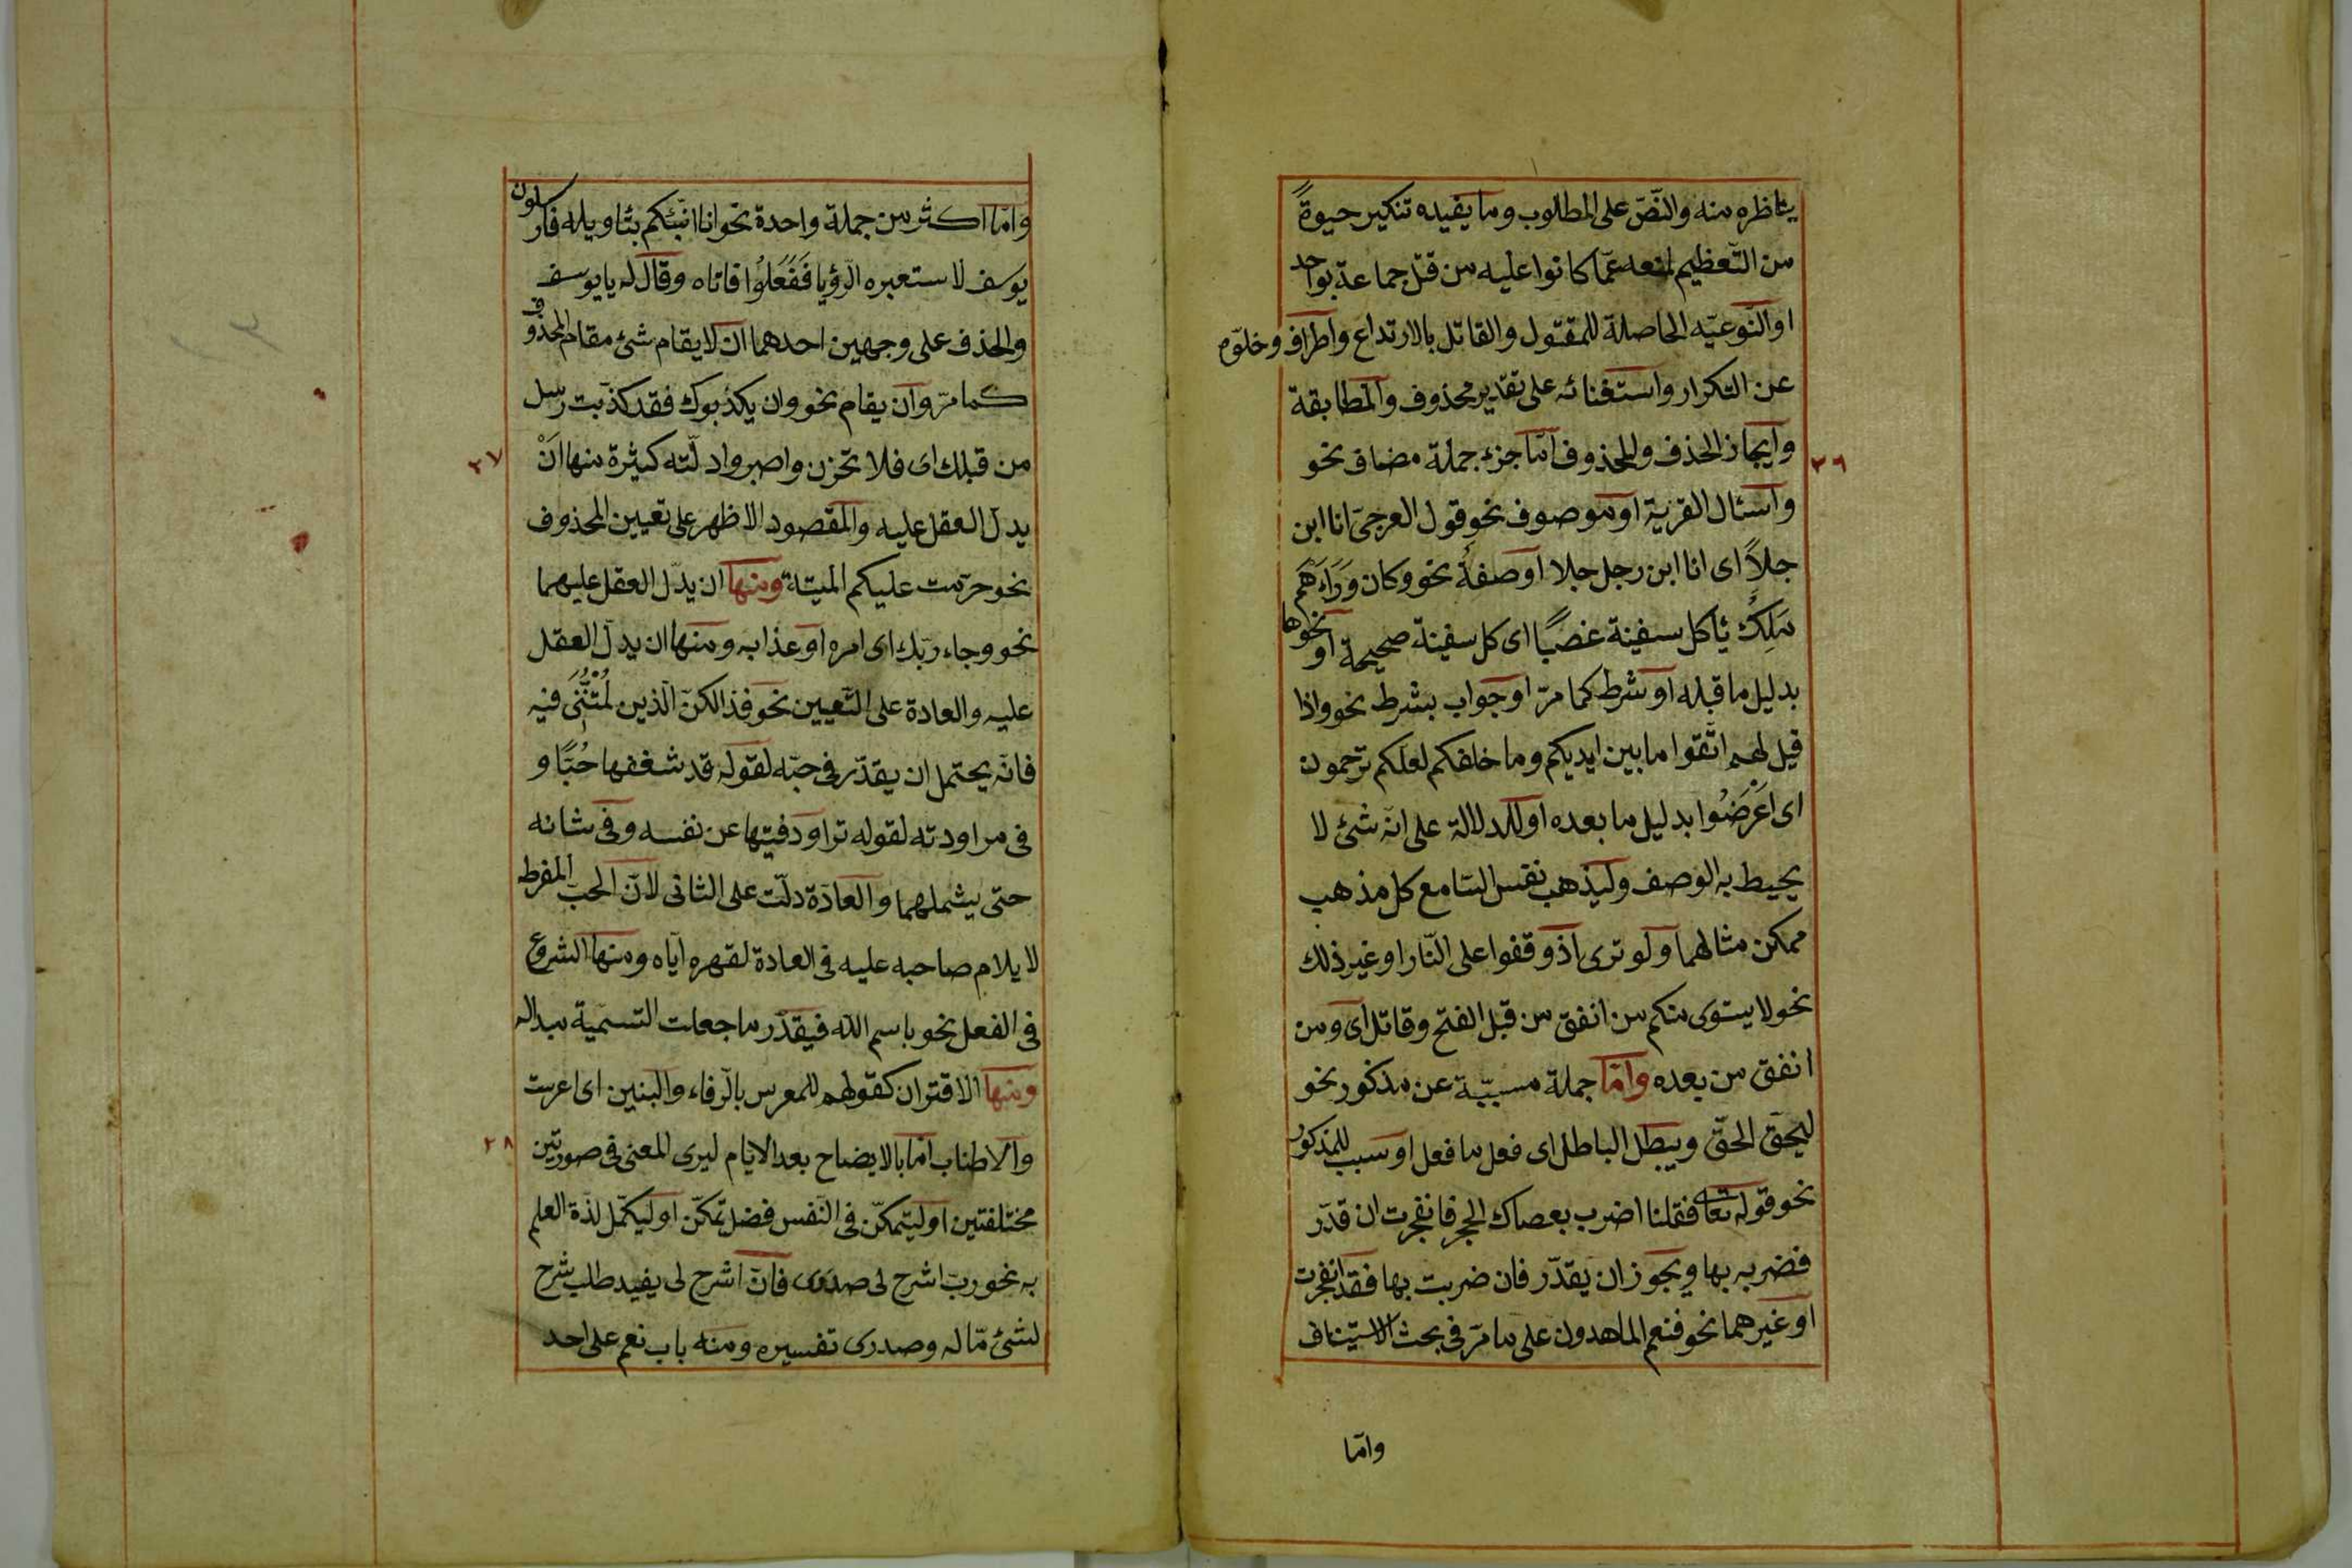 يناظره منه والنّصّ على المطلوب وما يفيده تنكير حيوةً
من التّعظيم لمنعه عمّا كانوا عليه من قتل جماعة بواحد
او النّوعيّه الحاصلة للمقتول والقاتل بالارتداع واطراف وخلوّه
عن التكرار واستغنائه على تقدير محذوف والمطابقة
وايجاز الحذف والمحذوف امّا جزء جملة مضاف نحو
٢٦
واسئال القرية او موصوف نحو قول العرجىّ انا ابن
جلاً اى انا ابن رجل جلا او صفةٌ نحو وكان وَرَاءَهُم
مَلِكٌ يأ كل سفينة غصبًا اى كل سفينة صحيحة او نحوها
بدليل ما قبله او شرط كما مرّ او جواب بشرط نحو واذا
قيل لهم اتّقوا ما بين ايديكم وما خلفكم لعلّكم ترحمون
اى اعْرَضُوا بدليل ما بعده او للدلالة على انّه شئ لا
يحيط به الوصف وليذهب نفس السّامع كل مذهب
ممكن مثالهما ولو ترى اذ وقفوا على النّار او غير ذلك
نحو لا يستوى منكم من انفق من قبل الفتح وقاتل اى ومن
انفق من بعده وامّا جملة مسبّبة عن مذكور نحو
ليحقّ الحقّ ويبطل الباطل اى فعل ما فعل او سبب للمذكور
نحو قوله تعا فقلنا اضرب بعصاك الحجر فانفجرت ان قدّر
فضربه بها ويجوز ان يقدّر فان ضربت بها فقد انفجرت
او غيرهما نحو فنعم الماهدون على ما مرّ فى بحث الاستيناف
وامّا
وامّا اكثر من جملة واحدة نحو انا انبّئكم بتأويله فارسلون
يوسف لاستعبره الرّؤيا فَفَعَلُوا فاتاه وقال له يا يوسف
والحذف على وجهين احدهما ان لا يقام شئ مقام المحذوف
كما مرّ وان يقام نحو وان يكذّبوك فقد كذّبت رسل
من قبلك اى فلا تحزن واصبر وادلّته كثيرة منها اَنْ
٢٧
يدلّ العقل عليه والمقصود الاظهر على تعيين المحذوف
نحو حرّمت عليكم الميتة ومنها ان يدلّ العقل عليهما
نحو وجاء ربّك اى امره او عذابه ومنها ان يدلّ العقل
عليه والعادة على التّعيين نحو فذالكنّ الّذين لُمْتُنَّنِى فيه
فانّه يحتمل ان يقدّر فى حبّه لقوله قد شغفها حُبًّا و
فى مراودته لقوله تراود فتيها عن نفسه وفى شانه
حتى يشملهما والعادة دلّت على الثانى لانّ الحبّ المفرط
لا يلام صاحبه عليه فى العادة لقهره ايّاه ومنها الشروع
فى الفعل نحو باسم اللّه فيقدّر ما جعلت التسمية مبداله
ومنها الاقتران كقولهم للمعرس بالرّفاء والبنين اى اعرست
والاطناب امّا بالايضاح بعد الايام ليرى المعنى فى صورتين
٢٨
مختلفتين او ليتمكّن فى النّفس فضل تمكّن او ليكمّل لذّة العلم
به نحو ربّ اشرح لى صدرى فانّ اشرح لى يفيد طلب شرح
لشئ مّا له وصدرى تفسيره ومنه باب نعم على احد